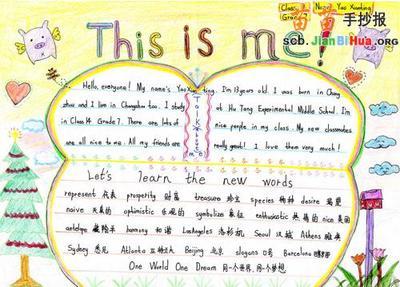 Class
Name: Yao Xueting
Grade
苗苗手抄报
scb.JianBiHua.ORG
This is me!
Hello, everyone! My name's Yao Xueting. I'm 13 years old. I was born in Chang
zhou and I live in Changzhou too. I study at Hu Tang Experimental Middle School. I'm
in Class 14 Grade 7. There are lots of nice people in my class. My new classmates
are all nice to me. All my friends are really great! I love them very much!
This is me
Let's learn the new words
represent 代表 prosperity 财富 treasure 珍宝 species 物种 desire 渴望
naive 天真的 optimistic 乐观的 symbolize 象征 enthusiastic 热情的 nice 美丽
antelope 藏羚羊 harmony 和谐 Los Angeles 洛杉矶 Seoul 汉城 Athens 雅典
Sydney 悉尼 Atlanta 亚特兰大 Beijing 北京 slogans 口号 Barcelona
One World One Dream 同一个世界,同一个梦想